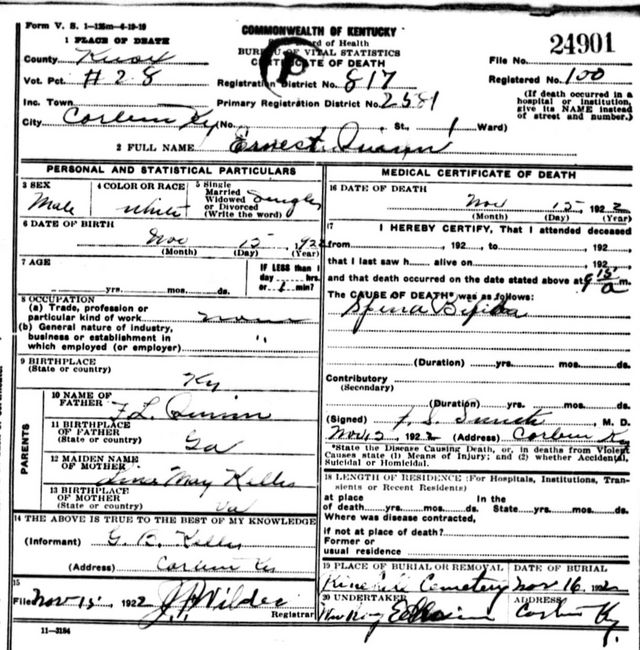 Form V. S. 1-125m-4-19-10
1 PLACE OF DEATH
County Knox
Vot. Pct. #28
Inc. Town
City Corbin Ky (No. St., 1 Ward)
COMMONWEALTH OF KENTUCKY
Board of Health
BUREAU OF VITAL STATISTICS
CERTIFICATE OF DEATH
Registration District No. 817
Primary Registration District No. 2581
24901
File No.
Registered No. 100
(If death occurred in a
hospital or institution,
give its NAME instead
of street and number.)
2 FULL NAME Ernest
PERSONAL AND STATISTICAL PARTICULARS
3 SEX
Male
4 COLOR OR RACE
white
5 Single
Married
Widowed
or Divorced
(Write the word)
Single
6 DATE OF BIRTH
Nov 15, 1922
(Month) (Day) (Year)
7 AGE
yrs. mos. ds.
IF LESS than 1
day hrs.
or 1 min?
8 OCCUPATION
(a) Trade, profession or
particular kind of work none
(b) General nature of industry,
business or establishment in
which employed (or employer) "
9 BIRTHPLACE
(State or country)
Ky
PARENTS
10 NAME OF
FATHER F L Quinn
11 BIRTHPLACE
OF FATHER
(State or country) Ga
12 MAIDEN NAME
OF MOTHER
May
13 BIRTHPLACE
OF MOTHER
(State or country) Va
14 THE ABOVE IS TRUE TO THE BEST OF MY KNOWLEDGE
(Informant) G. B.
(Address) Corbin Ky
15
Filed Nov 15, 1922
Registrar
11-3184
MEDICAL CERTIFICATE OF DEATH
16 DATE OF DEATH
Nov 15, 1922
(Month) (Day) (Year)
17
I HEREBY CERTIFY, That I attended deceased
from , 192 , to , 192 ,
that I last saw h alive on , 192 ,
and that death occurred on the date stated above at 9 15 a m.
The CAUSE OF DEATH* was as follows:
Spina Bifida
(Duration) yrs. mos. ds.
Contributory
(Secondary)
(Duration) yrs. mos. ds.
(Signed) , M. D.
, 1922 (Address) Corbin Ky
*State the Disease Causing Death, or, in deaths from Violent
Causes state (1) Means of Injury; and (2) whether Accidental,
Suicidal or Homicidal.
18 LENGTH OF RESIDENCE (For Hospitals, Institutions, Tran-
sients or Recent Residents)
at place In the
of death yrs. mos. ds. State yrs. mos. ds.
Where was disease contracted,
if not at place of death?
Former or
usual residence
19 PLACE OF BURIAL OR REMOVAL
Cemetery
DATE OF BURIAL
Nov 16, 1922
20 UNDERTAKER
ADDRESS
Corbin Ky